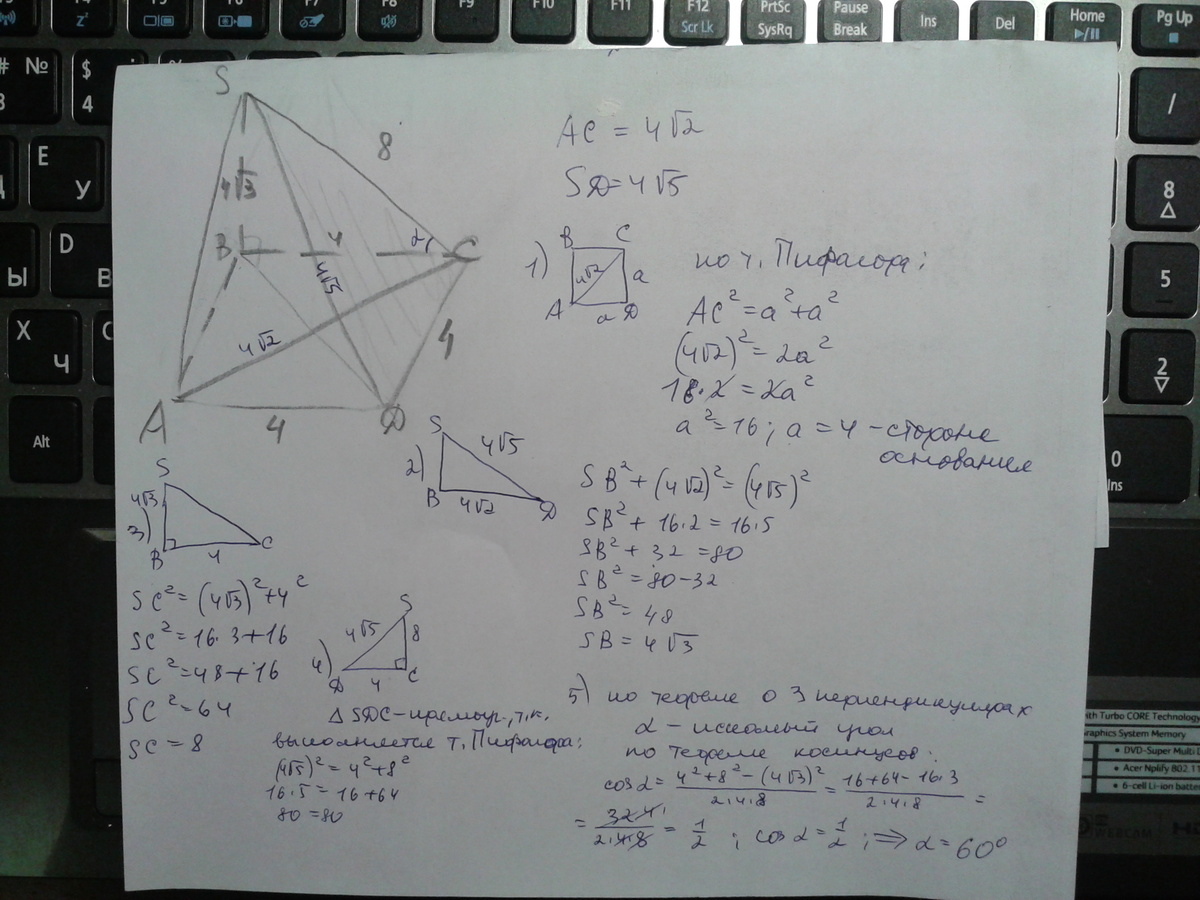 F7
F8
F9
F10
F11
F12
Scr Lk
PrtSc
SysRq
Pause
Break
Ins
Del
Home
Pg Up
# №
3
$
4
%
/
E
У
8
D
В
Ы
5
X
Ч
2
Alt
0
Ins
S
8
4√3
B
4
α
C
4√5
4√2
4
A
4
D
AC = 4√2
SD = 4√5
1)
B C
4√2
a
A a D
по т. Пифагора:
AC² = a² + a²
(4√2)² = 2a²
16·2 = 2a²
a² = 16 ; a = 4 – сторона
основания
2)
S
4√5
B 4√2 D
SB² + (4√2)² = (4√5)²
SB² + 16·2 = 16·5
SB² + 32 = 80
SB² = 80 - 32
SB² = 48
SB = 4√3
3)
S
4√3
B 4 C
SC² = (4√3)² + 4²
SC² = 16·3 + 16
SC² = 48 + 16
SC² = 64
SC = 8
4)
S
4√5 8
D 4 C
△ SDC – прямоуг., т.к.
выполняется т. Пифагора:
(4√5)² = 4² + 8²
16·5 = 16 + 64
80 = 80
5) по теореме о 3 перпендикулярах
α – искомый угол
по теореме косинусов:
cos α = 4² + 8² - (4√3)² / 2·4·8 = 16 + 64 - 16·3 / 2·4·8 =
= 32 / 2·4·8 = 1/2 ; cos α = 1/2 ; ⇒ α = 60°
with Turbo CORE Technology
Graphics System Memory
• DVD-Super Multi
• Acer Nplify 802.11
• 6-cell Li-ion